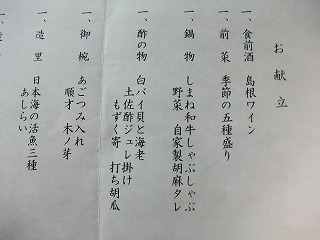 お献立
一、食前酒 島根ワイン
一、前菜 季節の五種盛り
一、鍋物 しまね和牛しゃぶしゃぶ
野菜 自家製胡麻タレ
一、酢の物 白バイ貝と海老
土佐酢ジュレ掛け
もずく寄 打ち胡瓜
一、御椀 あごつみ入れ
順才 木ノ芽
一、造里 日本海の活魚三種
あしらい
一、